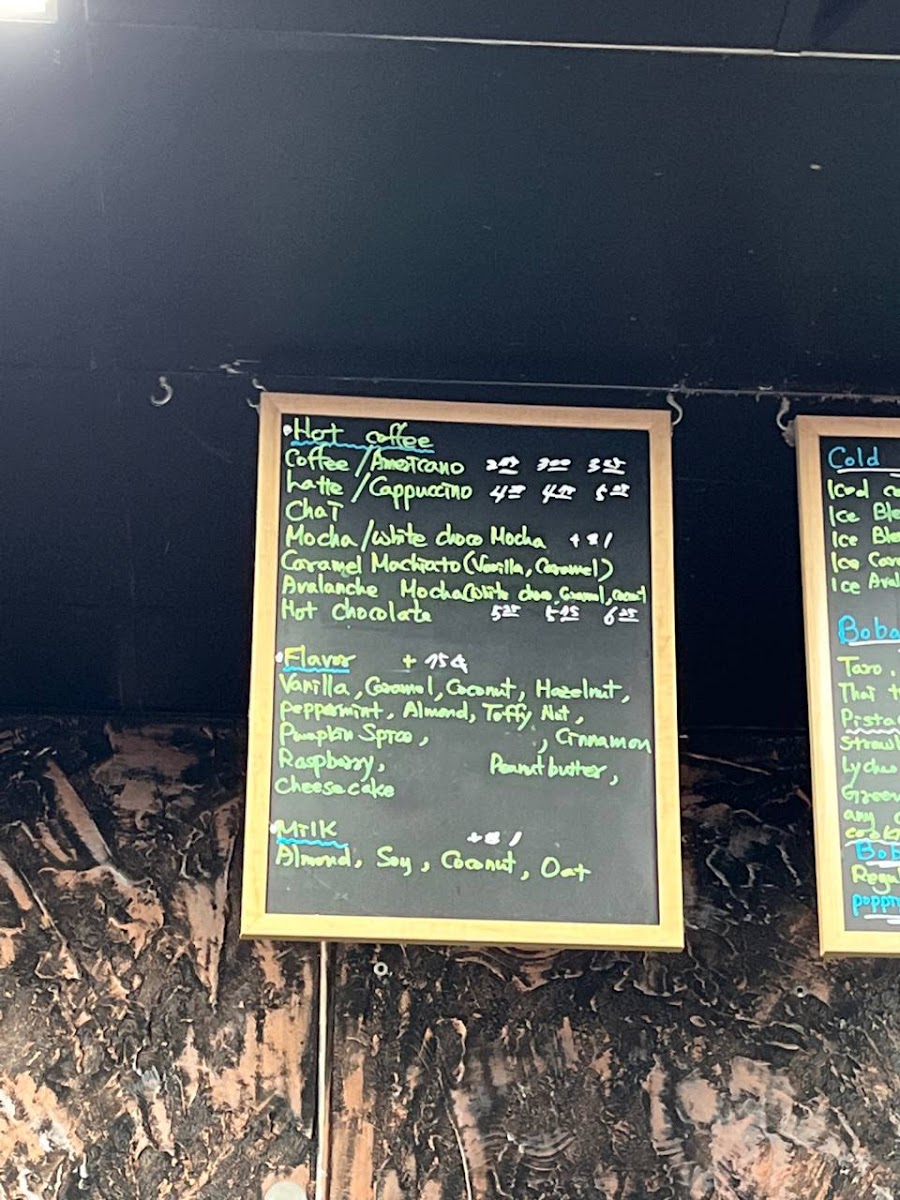 Hot coffee
Coffee/Americano 300
Latte/Cappuccino
Chai
Mocha/White choco Mocha +$1
Caramel Machiato(Vanilla, Caramel)
Avalanche Mocha(White choco, Caramel, Coconut
Hot chocolate
Flavor + 75¢
Vanilla, Caramel, Coconut, Hazelnut,
Peppermint, Almond, Toffy Nut,
Pumpkin Spice, , Cinnamon
Raspberry, Peanut butter,
Cheesecake
Milk +$1
Almond, Soy, Coconut, Oat
Cold
Iced co
Ice Ble
Ice Ble
Ice Car
Ice Aval
Boba
Taro,
Thai t
Pista
Strawb
Lychee
Green
any
cook
Bob
Regul
poppin